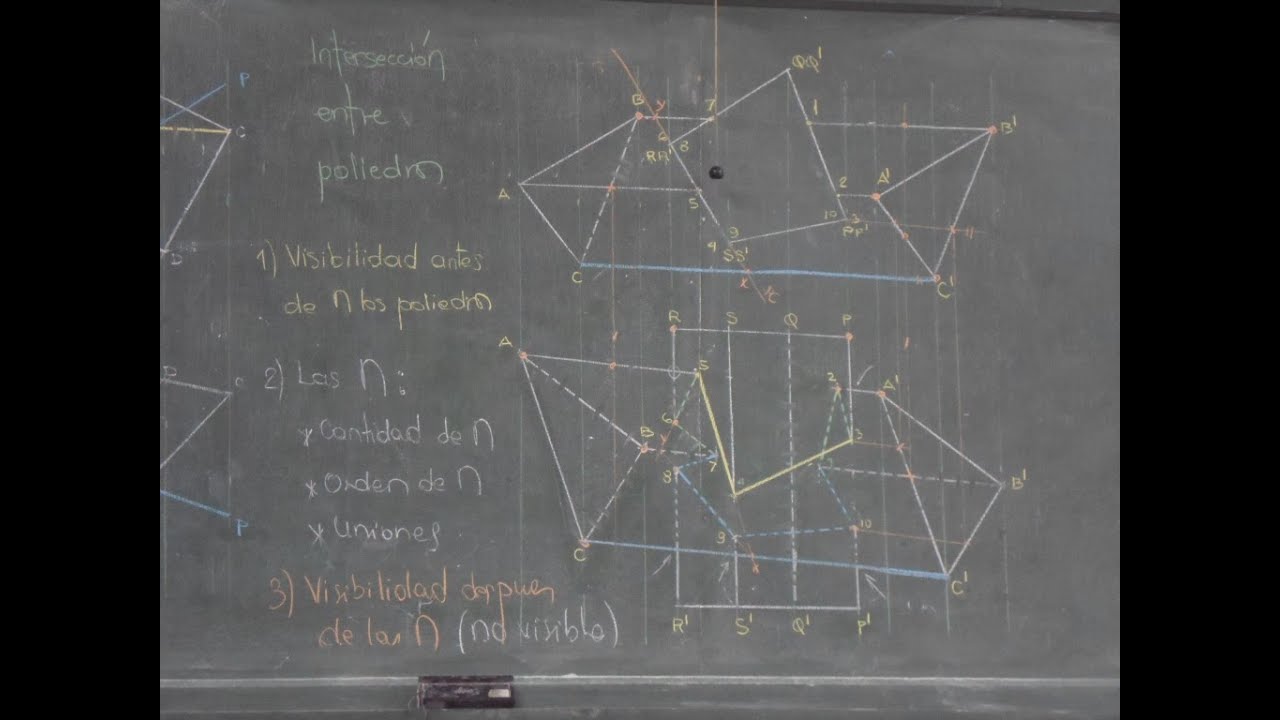 Intersección
entre
poliedros
1) Visibilidad antes
de ∩ los poliedros
2) Las ∩ :
* Cantidad de ∩
* Orden de ∩
* Uniones
3) Visibilidad despues
de las ∩ (no visible)
P
C
D
P
QQ'
B
y
7
1
B'
6
8
RR'
A
5
2
A'
10
3
PP'
9
4
SS'
C
x
C'
R
S
Q
P
A
5
2
A'
6
B
y
3
7
8
B'
9
10
C
x
C'
R'
S'
Q'
P'